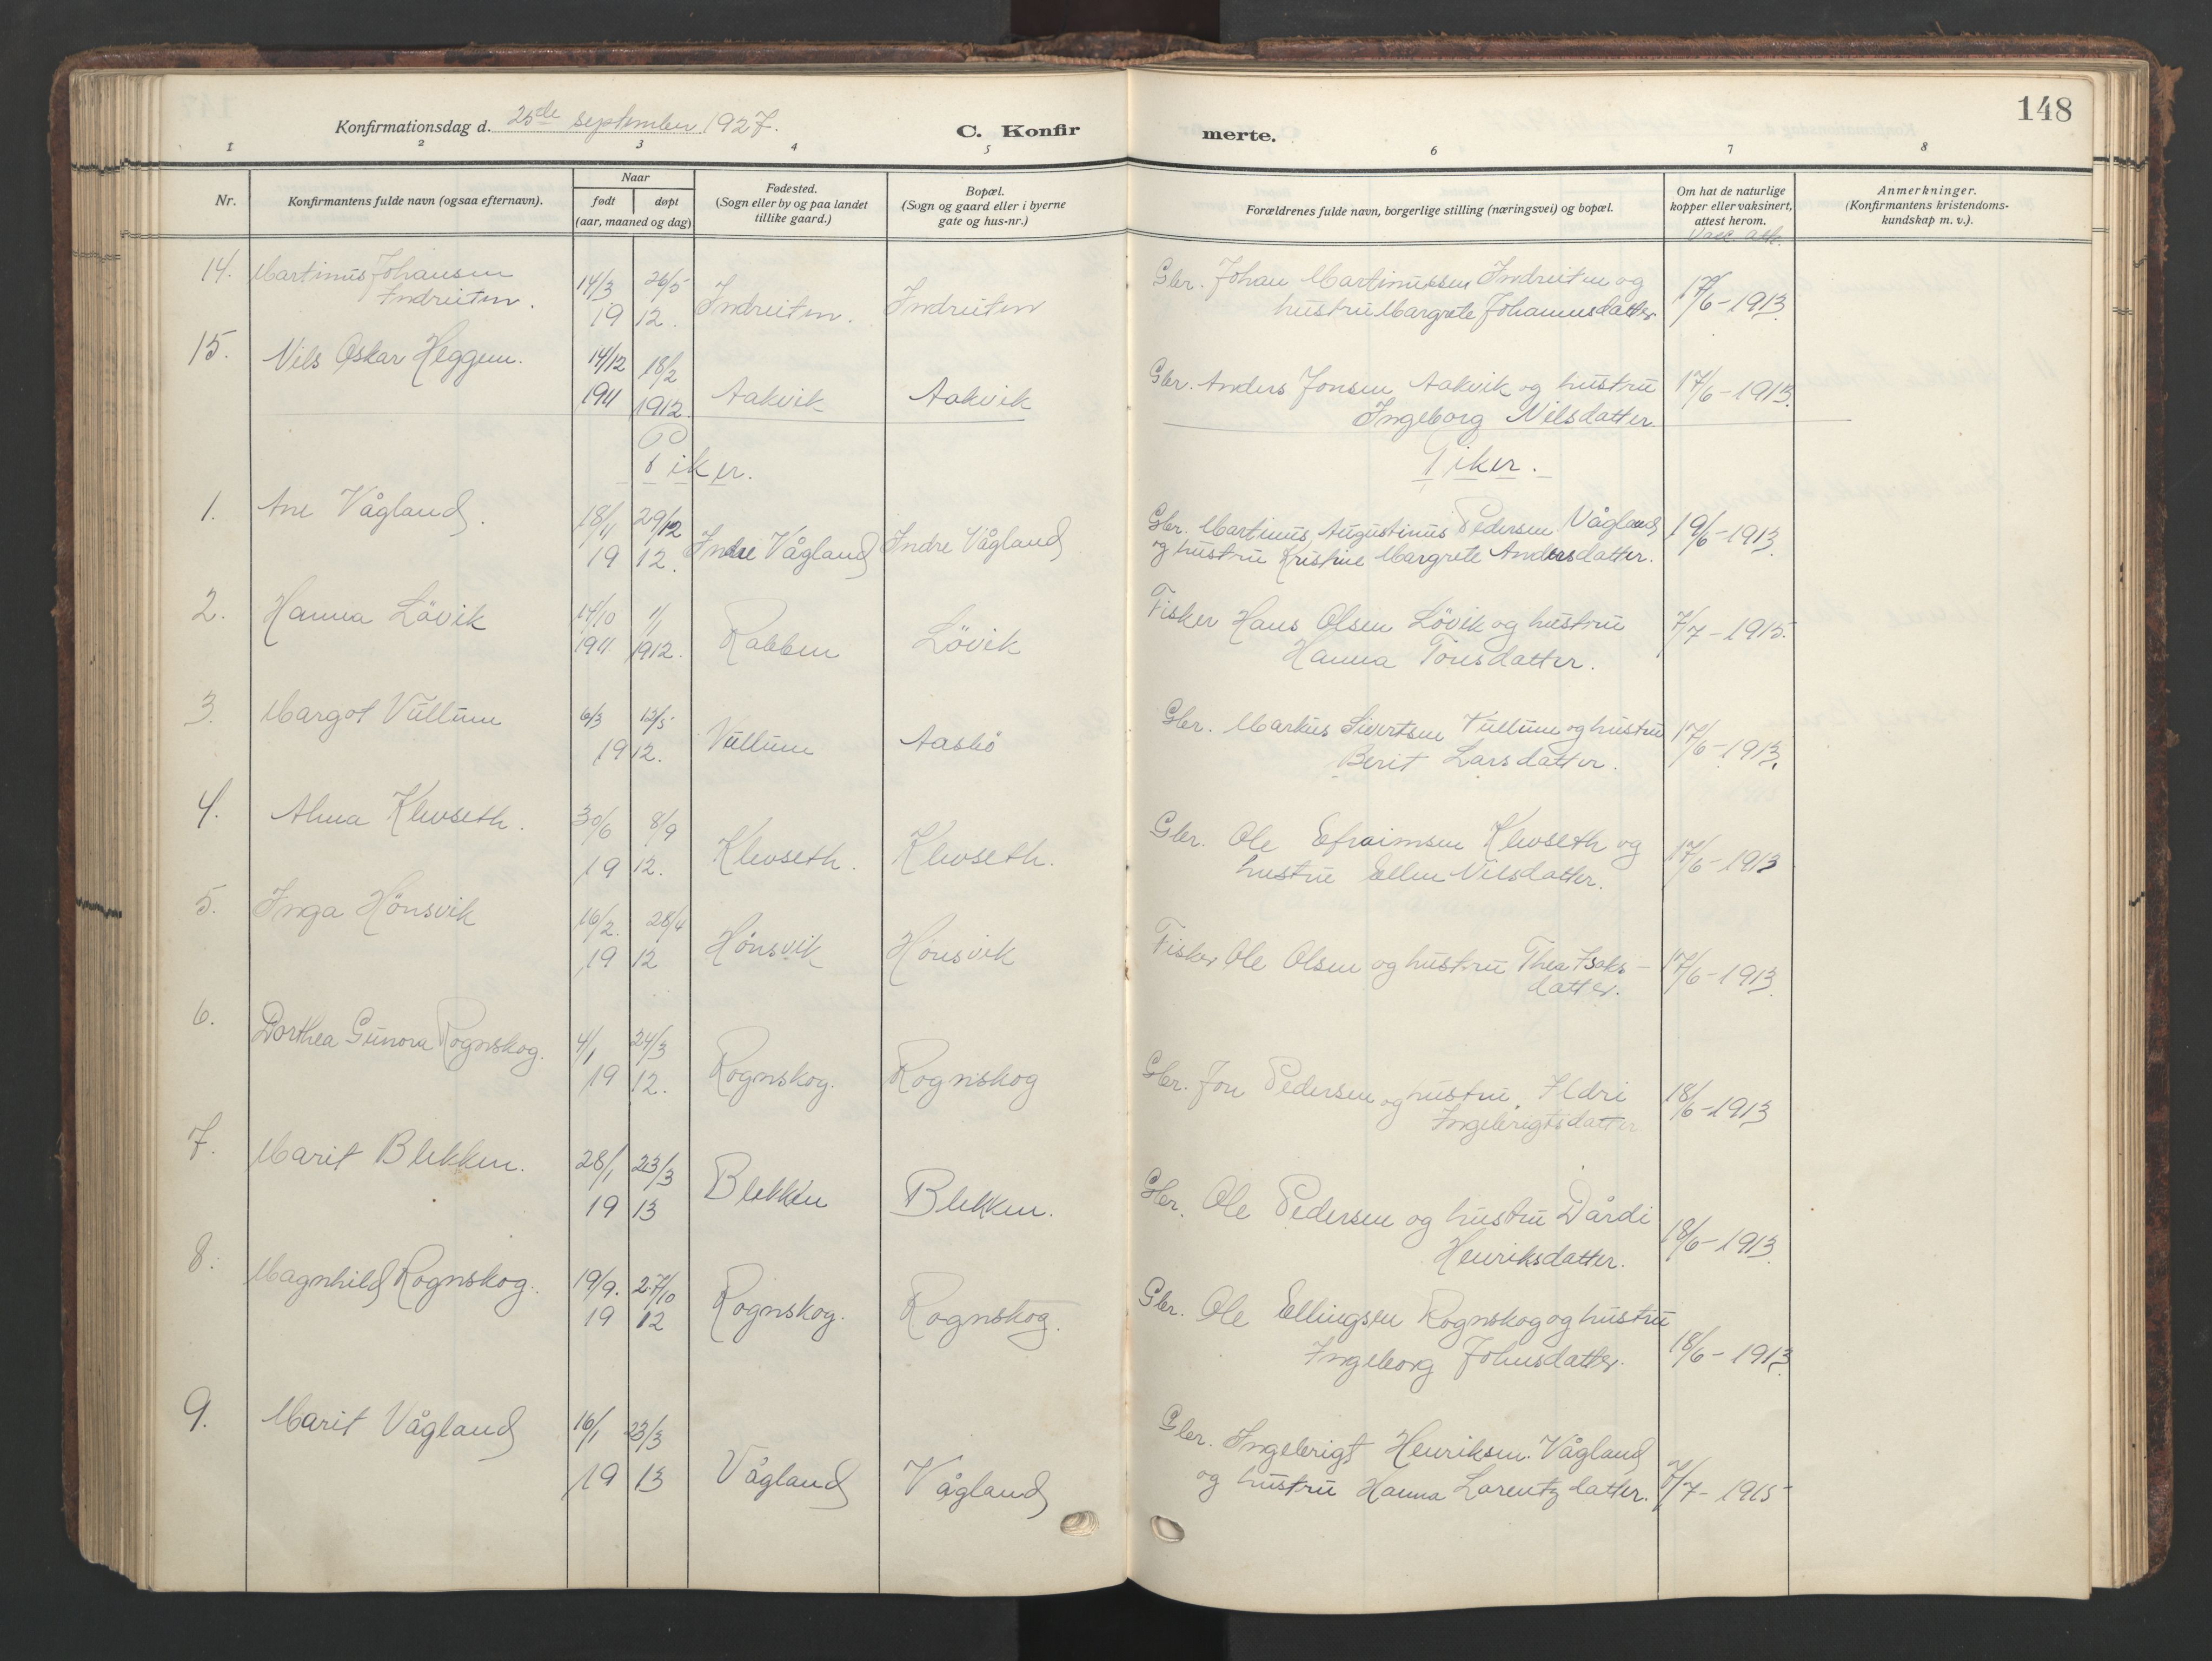 148
Konfirmationsdag d. 25de september 1927.
C. Konfir
merte.
1 2 3 4 5 6 7 8
Nr.
Konfirmantens fulde navn (ogsaa efternavn).
Naar
født
døpt
(aar, maaned og dag)
Fødested.
(Sogn eller by og paa landet
tillike gaard.)
Bopæl.
(Sogn og gaard eller i byerne
gate og hus-nr.)
Forældrenes fulde navn, borgerlige stilling (næringsvei) og bopæl.
Om hat de naturlige
kopper eller vaksinert,
attest herom.
Anmerkninger.
(Konfirmantens kristendoms-
kundskap m. v.).
Vacc att.
14. Martinus Johansen 14/3 26/5 Gbr. Johan Martinussen Indreiten og 17/6-1913
Indreiten. 19 12. Indreiten. Indreiten hustru Margrete Johannesdatter
15. Nils Oskar Heggem. 14/12 18/2 Gbr. Anders Jonsen Aakvik og hustru 17/6-1913.
1911 1912. Aakvik Aakvik Ingeborg Nilsdatter.
Piker. Piker.
1. Ane Vågland. 18/11 29/12 Gbr. Martinus Augustinus Pedersen Vågland 19/6-1913.
19 12. Indre Vågland Indre Vågland og hustru Kristine Margrete Andersdatter.
2. Hanna Lövik 14/10 1/1 Fisker Hans Olsen Lövik og hustru 7/7-1915.
1911 1912. Rabben Lövik Hanna Tønsdatter.
3. Margot Vullum 6/3 12/5 Gbr. Markus Sivertsen Vullum og hustru 17/6-1913.
1912. Vullum Aasbö Berit Larsdatter.
4. Alma Klevseth. 30/6 8/9 Gbr. Ole Efraimsen Klevseth og 17/6-1913
19 12. Klevseth. Klevseth. hustru Ellen Nilsdatter.
5. Inga Hönsvik 16/2. 28/4 Fisker Ole Olsen og hustru Thea Isaks- 17/6-1913.
19 12 Hönsvik Hönsvik datter.
6. Dorthea Gunora Rognskog. 4/1 24/3 Gbr. Jon Pedersen og hustru Ildri 18/6-1913
19 12. Rognskog. Rognskog Ingebrigtsdatter
7. Marit Blekken. 28/1 23/3 Gbr. Ole Pedersen og hustru Dårdi 18/6-1913.
19 13 Blekken Blekken. Henriksdatter.
8. Magnhild Rognskog. 19/9. 27/10 Gbr. Ole Ellingsen Rognskog og hustru 18/6-1913.
19 12 Rognskog. Rognskog. Ingeborg Johnsdatter.
9. Marit Vågland 16/1 23/3 Gbr. Ingebrigt Henriksen. Vågland
19 13 Vågland Vågland og hustru Hanna Lorentzdatter. 7/7-1915